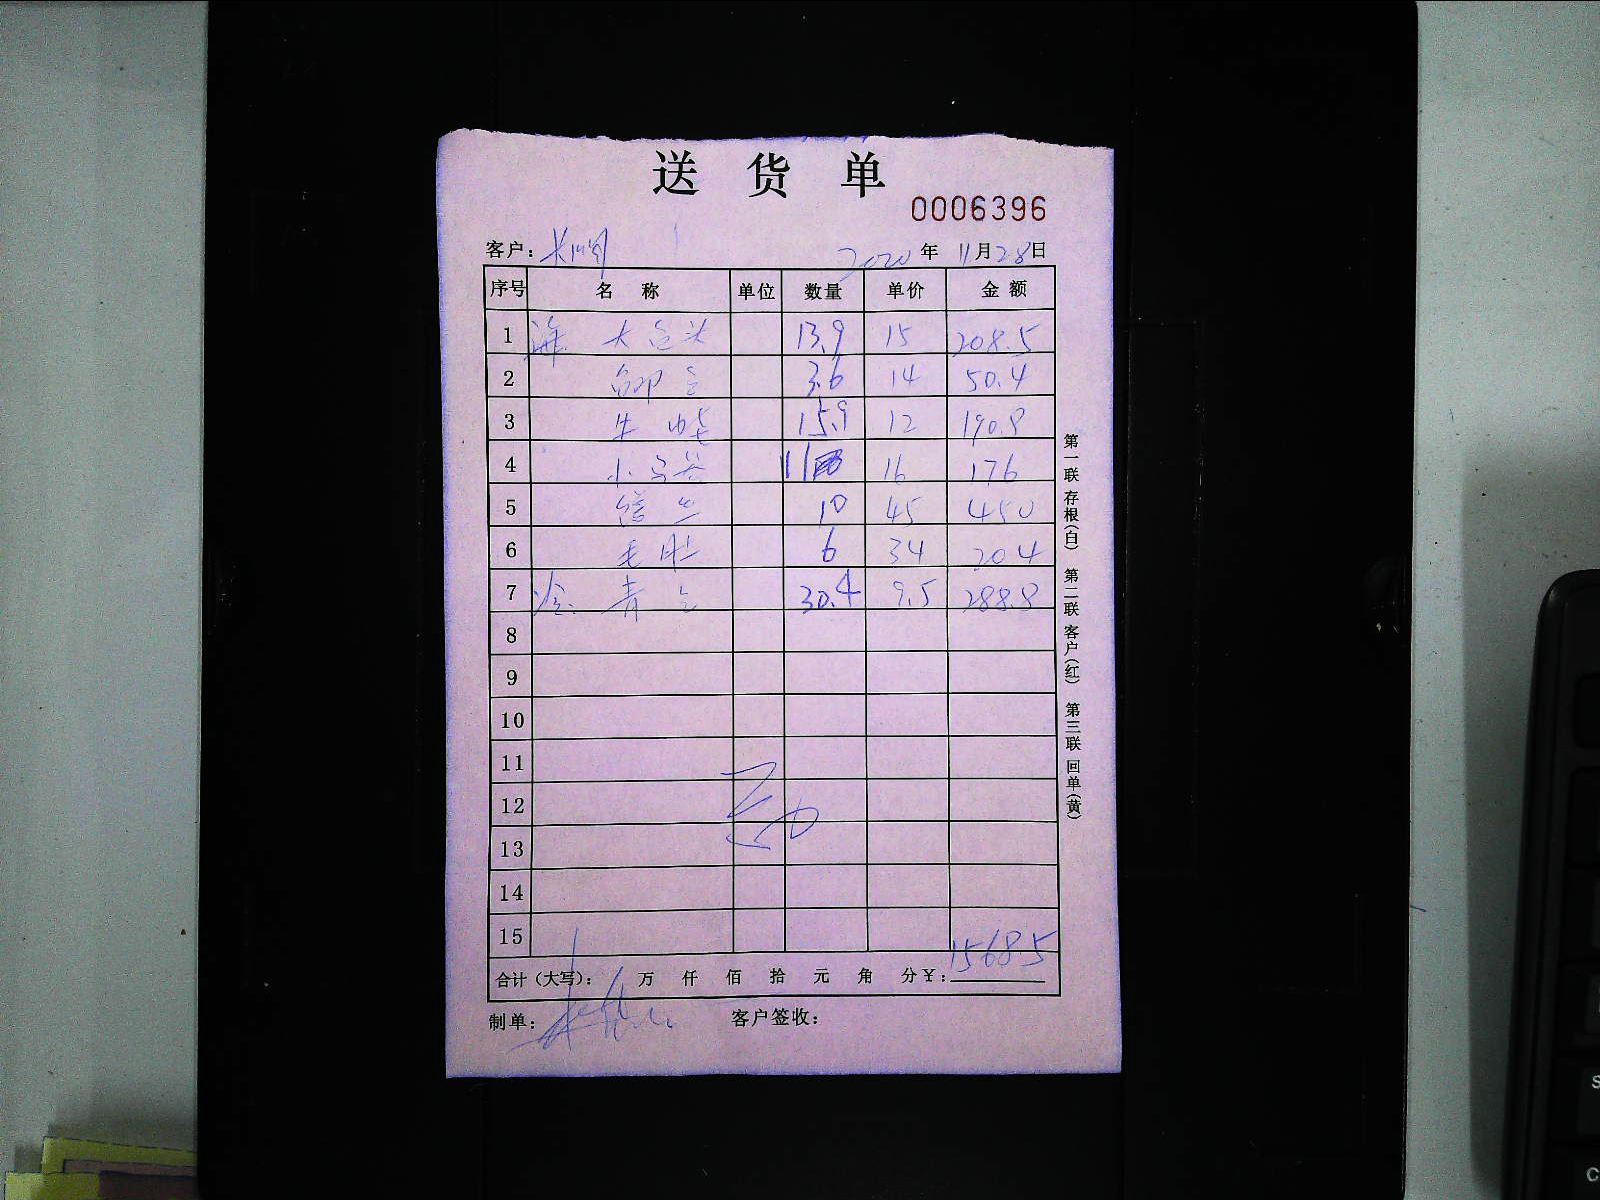 送 货 单
0006396
客户： 2020 年 11 月 28 日
序号 名 称 单位 数量 单价 金 额
1 海 大 头 13.9 15 208.5
2 3.6 14 50.4
3 生 15.9 12 190.8
4 小 11 16 176
5 10 45 450
6 毛肚 6 34 204
7 冷. 青 30.4 9.5 288.8
8
9
10
11
12
13
14
15
1568.5
合计（大写）： 万 仟 佰 拾 元 角 分 ¥：
制单： 客户签收：
第一联 存根（白） 第二联 客户（红） 第三联 回单（黄）
S
C